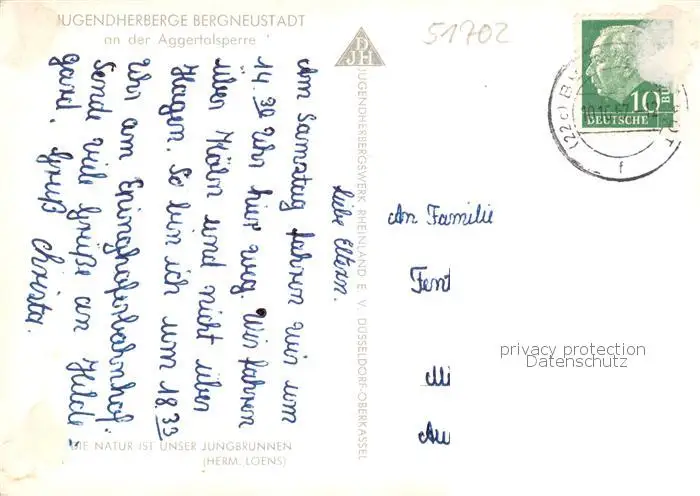 JUGENDHERBERGE BERGNEUSTADT
an der Aggertalsperre
51702
DJH
10
DEUTSCHE BUNDESPOST
(22c) BE
f
JUGENDHERBERGSWERK RHEINLAND E. V. DÜSSELDORF-OBERKASSEL
Liebe Eltern.
Am Samstag fahren wir um
14.30 Uhr hier weg. Wir fahren
über Köln und nicht über
Hagen. So bin ich um 18.33
Uhr am Eininghoferbahnhof.
Sende viele Grüße an Hilde,
Gard. Gruß Christa.
An Familie
Fent
Mi
Au
privacy protection
Datenschutz
DIE NATUR IST UNSER JUNGBRUNNEN
(HERM. LOENS)